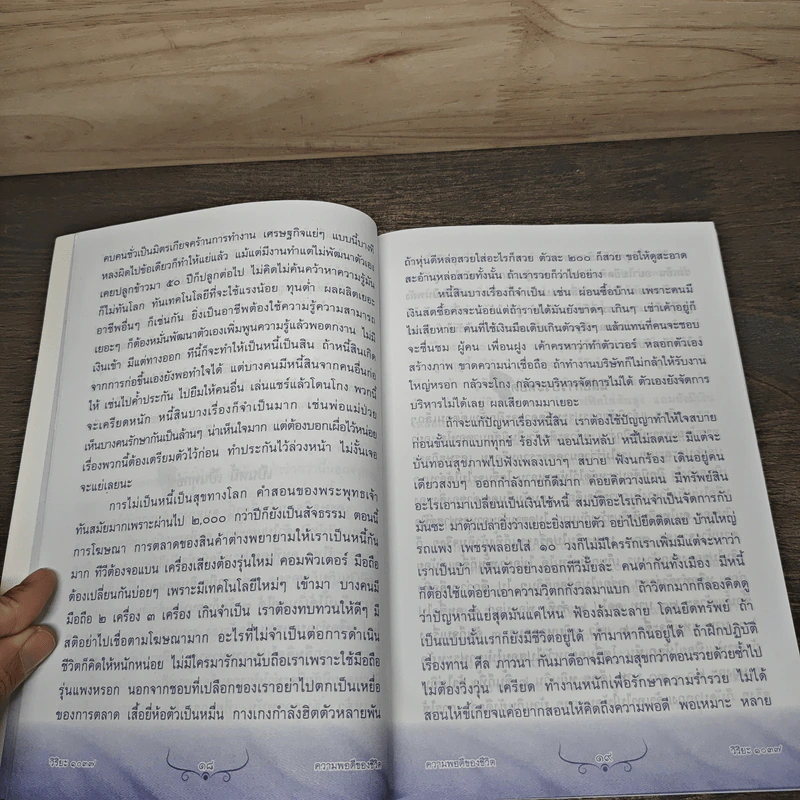 คบคนชั่วเป็นมิตรเกียจคร้านการทำงาน เศรษฐกิจแย่ๆ แบบนี้บางที
หลงผิดไปข้อเดียวก็ทำให้แย่แล้ว แม้แต่มีงานทำแต่ไม่พัฒนาตัวเอง
เคยปลูกข้าวมา ๕๐ ปีก็ปลูกต่อไป ไม่คิดไม่ค้นคว้าหาความรู้มัน
ก็ไม่ทันโลก ทันเทคโนโลยีที่จะใช้แรงน้อย ทุนต่ำ ผลผลิตเยอะ
อาชีพอื่นๆ ก็เช่นกัน ยิ่งเป็นอาชีพต้องใช้ความรู้ความสามารถ
เยอะๆ ก็ต้องหมั่นพัฒนาตัวเองเพิ่มพูนความรู้แล้วพอตกงาน ไม่มี
เงินเข้า มีแต่ทางออก ทีนี้ก็จะทำให้เป็นหนี้เป็นสิน ถ้าหนี้สินเกิด
จากการก่อขึ้นเองยังพอทำใจได้ แต่บางคนมีหนี้สินจากคนอื่นก่อ
ให้ เช่นไปค้ำประกัน ไปยืมให้คนอื่น เล่นแชร์แล้วโดนโกง พวกนี้
จะเครียดหนัก หนี้สินบางเรื่องก็จำเป็นมาก เช่นพ่อแม่ป่วย
เห็นบางคนรักษากันเป็นล้านๆ น่าเห็นใจมาก แต่ต้องบอกเผื่อไว้หน่อย
เรื่องพวกนี้ต้องเตรียมตัวไว้ก่อน ทำประกันไว้ล่วงหน้า ไม่งั้นเจอ
จะแย่เลยนะ
การไม่เป็นหนี้เป็นสุขทางโลก คำสอนของพระพุทธเจ้า
ทันสมัยมากเพราะผ่านไป ๒,๐๐๐ กว่าปีก็ยังเป็นสัจธรรม ตอนนี้
การโฆษณา การตลาดของสินค้าต่างพยายามให้เราเป็นหนี้กัน
มาก ทีวีต้องจอแบน เครื่องเสียงต้องรุ่นใหม่ คอมพิวเตอร์ มือถือ
ต้องเปลี่ยนกันบ่อยๆ เพราะมีเทคโนโลยีใหม่ๆ เข้ามา บางคนมี
มือถือ ๒ เครื่อง ๓ เครื่อง เกินจำเป็น เราต้องทบทวนให้ดีๆ มี
สติอย่าไปเชื่อตามโฆษณามาก อะไรที่ไม่จำเป็นต่อการดำเนิน
ชีวิตก็คิดให้หนักหน่อย ไม่มีใครมารักมานับถือเราเพราะใช้มือถือ
รุ่นแพงหรอก นอกจากชอบที่เปลือกของเราอย่าไปตกเป็นเหยื่อ
ของการตลาด เสื้อยี่ห้อตัวเป็นหมื่น กางเกงกำลังฮิตตัวหลายพัน
วิริยะ ๑๐๓๗
๑๘
ความพอดีของชีวิต
ถ้าหุ่นดีหล่อสวยใส่อะไรก็สวย ตัวละ ๒๐๐ ก็สวย ขอให้ดูสะอาด
สะอ้านหล่อสวยทั้งนั้น ถ้าเรารวยก็ว่าไปอย่าง
หนี้สินบางเรื่องก็จำเป็น เช่น ผ่อนซื้อบ้าน เพราะคนมี
เงินสดซื้อคงจะน้อยแต่ถ้ารายได้มันยังขาดๆ เกินๆ เช่าเค้าอยู่ก็
ไม่เสียหาย คนที่ใช้เงินมือเติบเกินตัวจริงๆ แล้วแทนที่คนจะชอบ
จะชื่นชม ผู้คน เพื่อนฝูง เค้าครหาว่าทำตัวเวอร์ หลอกตัวเอง
สร้างภาพ ขาดความน่าเชื่อถือ ถ้าทำงานบริษัทก็ไม่กล้าให้รับงาน
ใหญ่หรอก กลัวจะโกง กลัวจะบริหารจัดการไม่ได้ ตัวเองยังจัดการ
บริหารไม่ได้เลย ผลเสียตามมาเยอะ
ถ้าจะแก้ปัญหาเรื่องหนี้สิน เราต้องใช้ปัญญาทำให้ใจสบาย
ก่อนขั้นแรกแบกทุกข์ ร้องไห้ นอนไม่หลับ หนี้ไม่ลดนะ มีแต่จะ
บั่นทอนสุขภาพไปฟังเพลงเบาๆ สบาย ฟังนกร้อง เดินอยู่คน
เดียวสงบๆ ออกกำลังกายก็ดีมาก ค่อยคิดวางแผน มีทรัพย์สิน
อะไรเอามาเปลี่ยนเป็นเงินใช้หนี้ สมบัติอะไรเกินจำเป็นจัดการกับ
มันซะ มาตัวเปล่ายิ่งวางเยอะยิ่งสบายตัว อย่าไปยึดติดเลย บ้านใหญ่
รถแพง เพชรพลอยใส่ ๑๐ วงก็ไม่มีใครรักเราเพิ่มมีแต่จะหาว่า
เราเป็นบ้า เห็นตัวอย่างออกทีวีมั้ยล่ะ คนด่ากันทั้งเมือง มีหนี้
ก็ต้องใช้แต่อย่าเอาความวิตกกังวลมาแบก ถ้าวิตกมากก็ลองคิดดู
ว่าปัญหานี้แย่สุดมันแค่ไหน ฟ้องล้มละลาย โดนยึดทรัพย์ ถ้า
เป็นแบบนั้นเราก็ยังมีชีวิตอยู่ได้ ทำมาหากินอยู่ได้ ถ้าฝึกปฏิบัติ
เรื่องทาน ศีล ภาวนา กันมาดีอาจมีความสุขกว่าตอนรวยด้วยซ้ำไป
ไม่ต้องวิ่งวุ่น เครียด ทำงานหนักเพื่อรักษาความร่ำรวย ไม่ได้
สอนให้ขี้เกียจแค่อยากสอนให้คิดถึงความพอดี พอเหมาะ หลาย
ความพอดีของชีวิต
๑๙
วิริยะ ๑๐๓๗